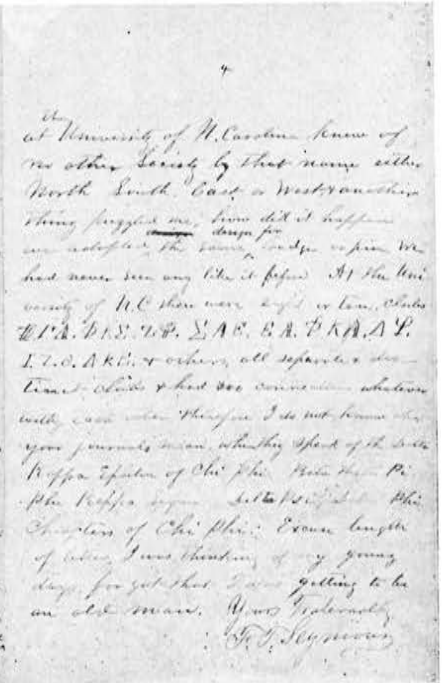 4
the
at University of N. Carolina knew of
no other Society by that name either
North South, East or West & another
thing puzzled me, how did it happen
design for
we adopted the same badge or pin. We
had never seen any like it before. At the Uni
versity of N.C there were eight or ten, Clubs
all separate & dis
tinct clubs & had no connection whatever
with each other therefore I do not know what
your journals mean, when they speak of the Delta
Kappa Epsilon of Chi Phi. Beta Theta Pi
Phi Kappa Delta Psi Phi
Chapters of Chi Phi: Excuse length
of letter I was thinking of my young
days, forgot that I was getting to be
an old man. Yours Fraternally
F. T. Seymour